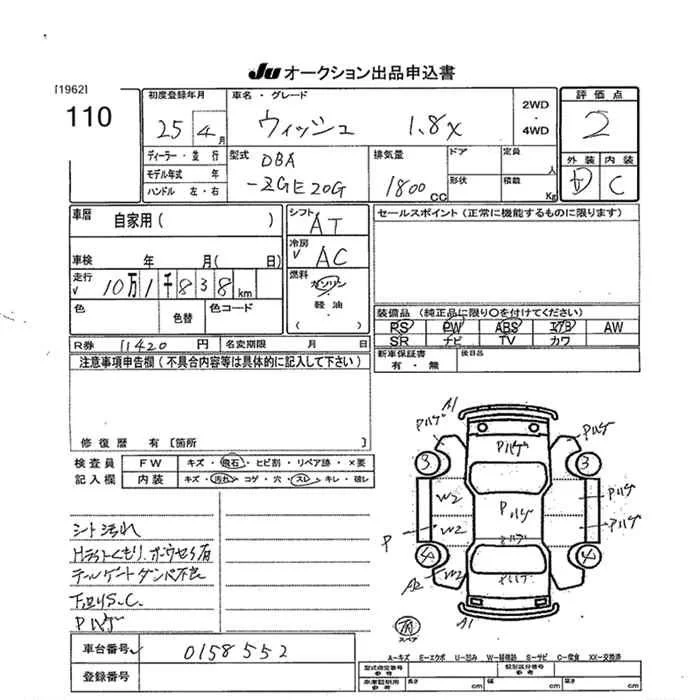 JU オークション出品申込書
[1962]
110
初度登録年月
25 4月
車名・グレード
ウィッシュ 1.8X
2WD
・
4WD
評価点
2
外装 内装
D C
ディーラー・並行
モデル年式 年
ハンドル 左・右
型式
DBA
-ZGE20G
排気量
1800 CC
ドア
定員
人
形状
積載
Kg
車歴
自家用( )
シフト
AT
セールスポイント(正常に機能するものに限ります)
車検 年 月( 日)
冷房
AC
走行
10万1千838km
燃料
ガソリン
軽油
( )
色
色替
色コード
装備品(純正品に限り○を付けてください)
PS PW ABS エアB AW
SR ナビ TV カワ
R券 11420 円
名変期限 月 日
新車保証書
有・無
後日品
注意事項申告欄(不具合内容等は具体的に記入して下さい)
修復歴 有[箇所 ]
検査員
記入欄
FW キズ・飛石・ヒビ割・リペア跡・×要
内装 キズ・汚れ・コゲ・穴・スレ・キレ・破レ
シート汚れ
Hライトくもり、ボウセイ有
テールゲートダンパ不良
下回りS.C.
Pハゲ
A1
Pハゲ
Pハゲ
Pハゲ
3
3
W2
P
Pハゲ
Pハゲ
P
W2
Pハゲ
4
4
A2
W2
Pハゲ
A1
スペア
A-キズ E-エクボ U-凹み W-補修跡 S-サビ C-腐食 XX-交換済
車台番号 0158552
登録番号
型式指定番号
参考
類別区分番号
参考
車庫証明用
参考
長さ cm
幅 cm
高さ cm